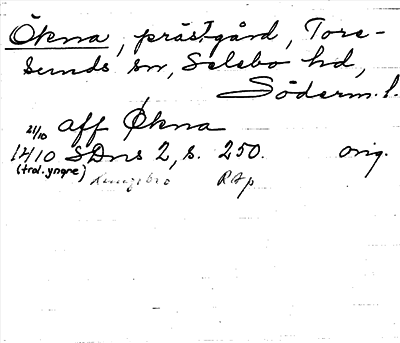 Ökna, prästgård, Tore-
sunds sn, Selebo hd,
Söderm. l.
21/10 aff Økna
1410 SDns 2, s. 250. orig.
(trol. yngre) RAp